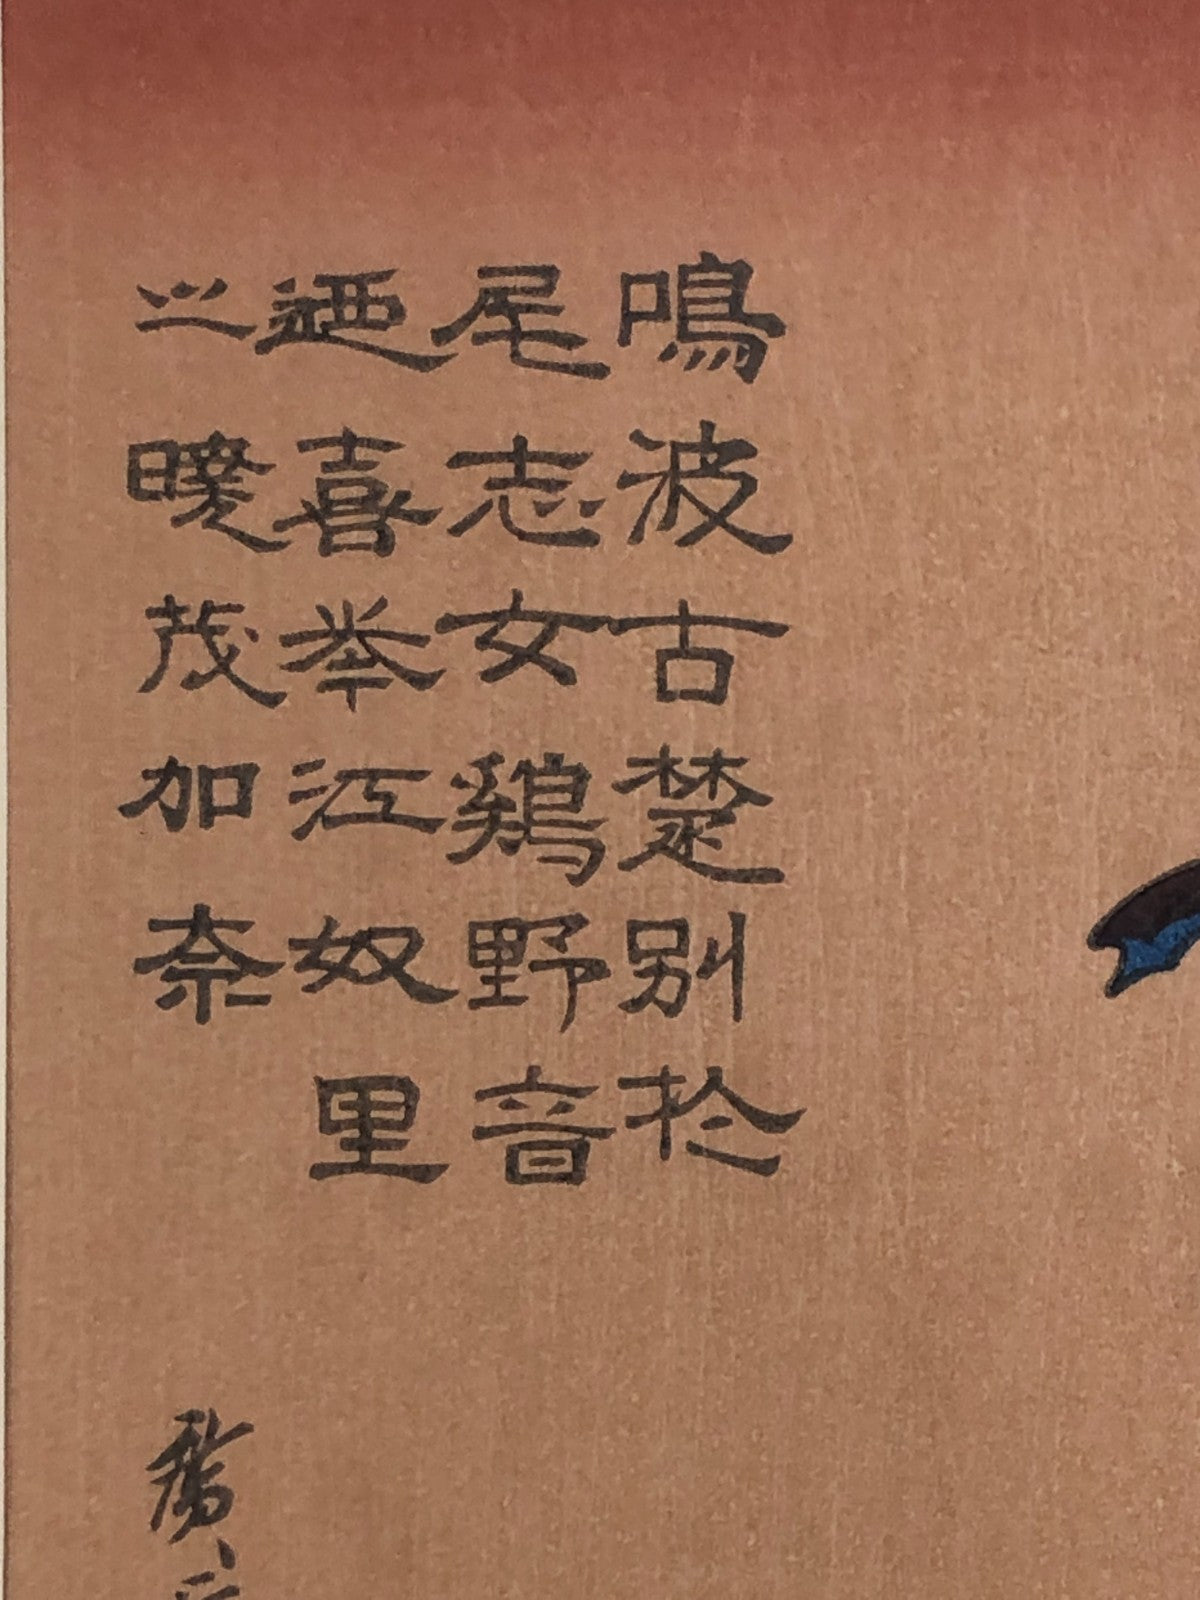 鳴波古楚別扵
尾志女鷄野音
迺喜挙江奴里
之暁茂加奈
廣